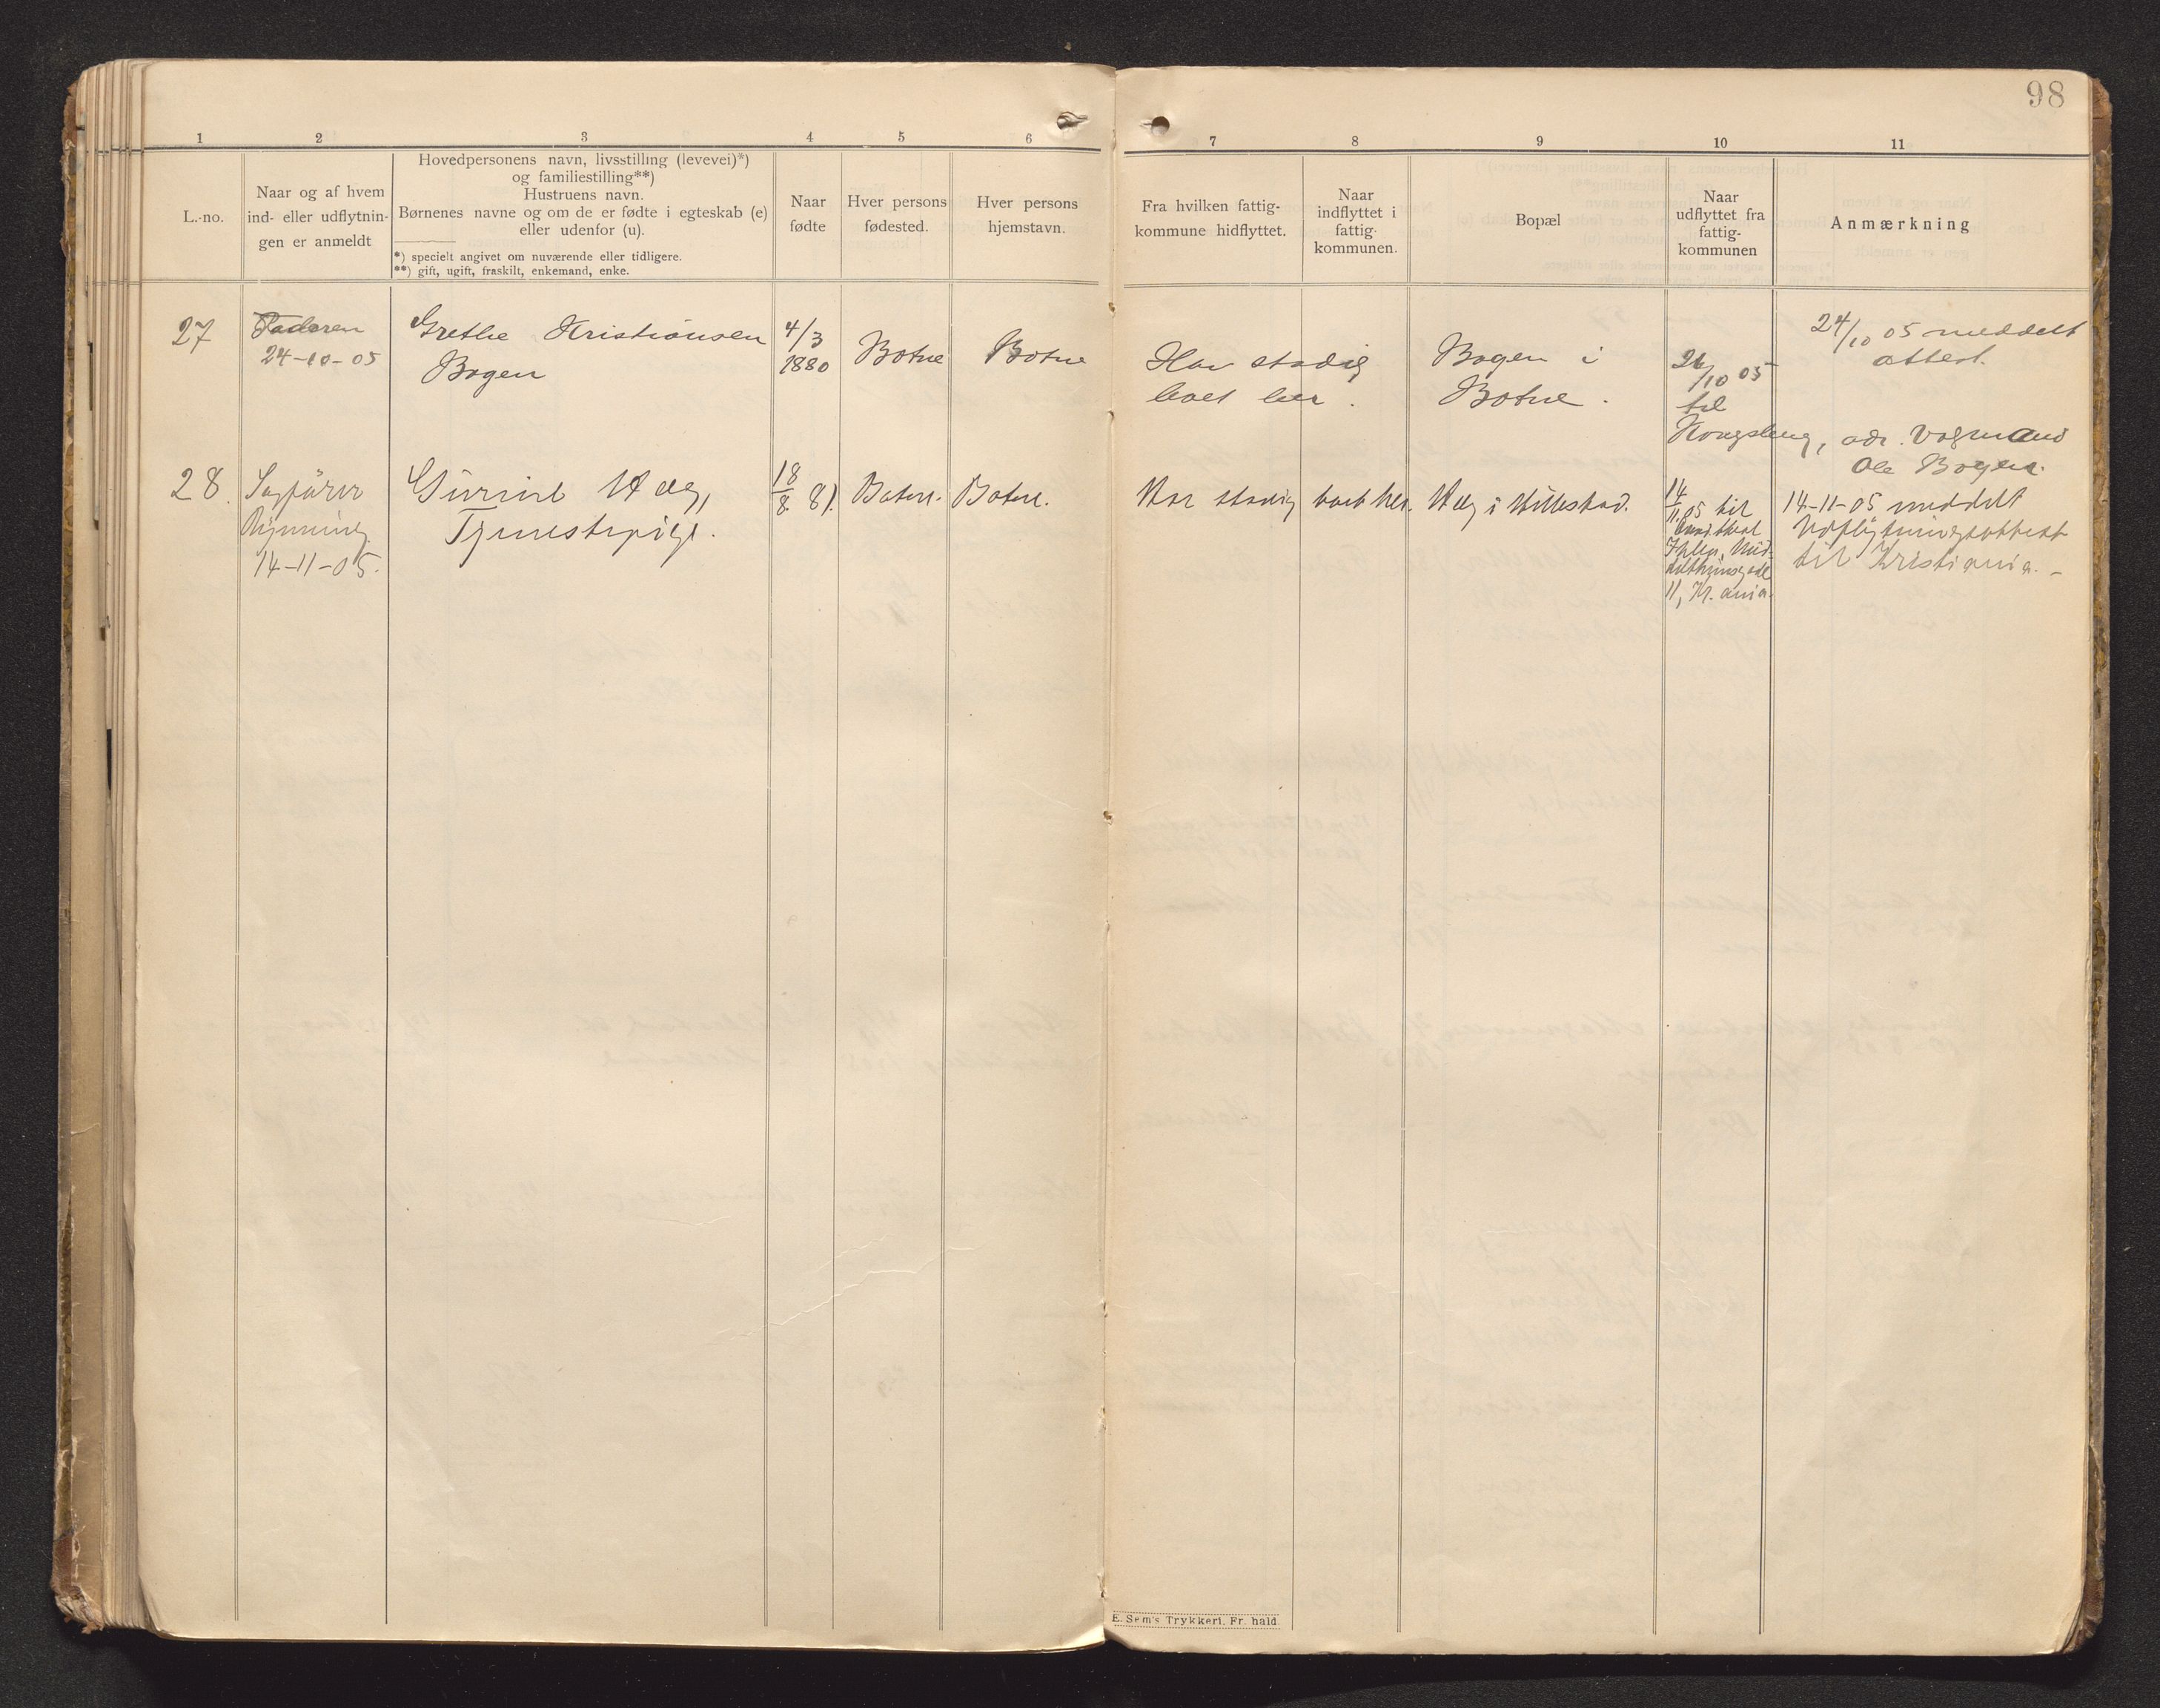 98
1 2 3 4 5 6 7 8 9 10 11
L.-no.
Naar og af hvem
ind- eller udflytnin-
gen er anmeldt
Hovedpersonens navn, livsstilling (levevei)*)
og familiestilling**)
Hustruens navn.
Børnenes navne og om de er fødte i egteskab (e)
eller udenfor (u).
*) specielt angivet om nuværende eller tidligere.
**) gift, ugift, fraskilt, enkemand, enke.
Naar
fødte
Hver persons
fødested.
Hver persons
hjemstavn.
Fra hvilken fattig-
kommune hidflyttet.
Naar
indflyttet i
fattig-
kommunen.
Bopæl
Naar
udflyttet fra
fattig-
kommunen
Anmærkning
27
Faderen
24-10-05
Grethe Kristiansen
Bogen
4/3
1880
Botne
Botne
Har stadig
boet her.
Bogen i
Botne.
24
/10 05
til
Kongsberg, adr. Vognmand
Ole Bogen.
24/10 05 meddelt
attest.
28.
Sagfører
14-11-05.
Tjenestepige.
18
8 81.
Botne.
Botne.
Har stadig boet her.
i Hillestad.
14
11.05 til
11, Kr.ania.
14-11-05 meddelt
Udflytningsattest
til Kristiania. -
E. Sem's Trykkeri. Fr. hald.